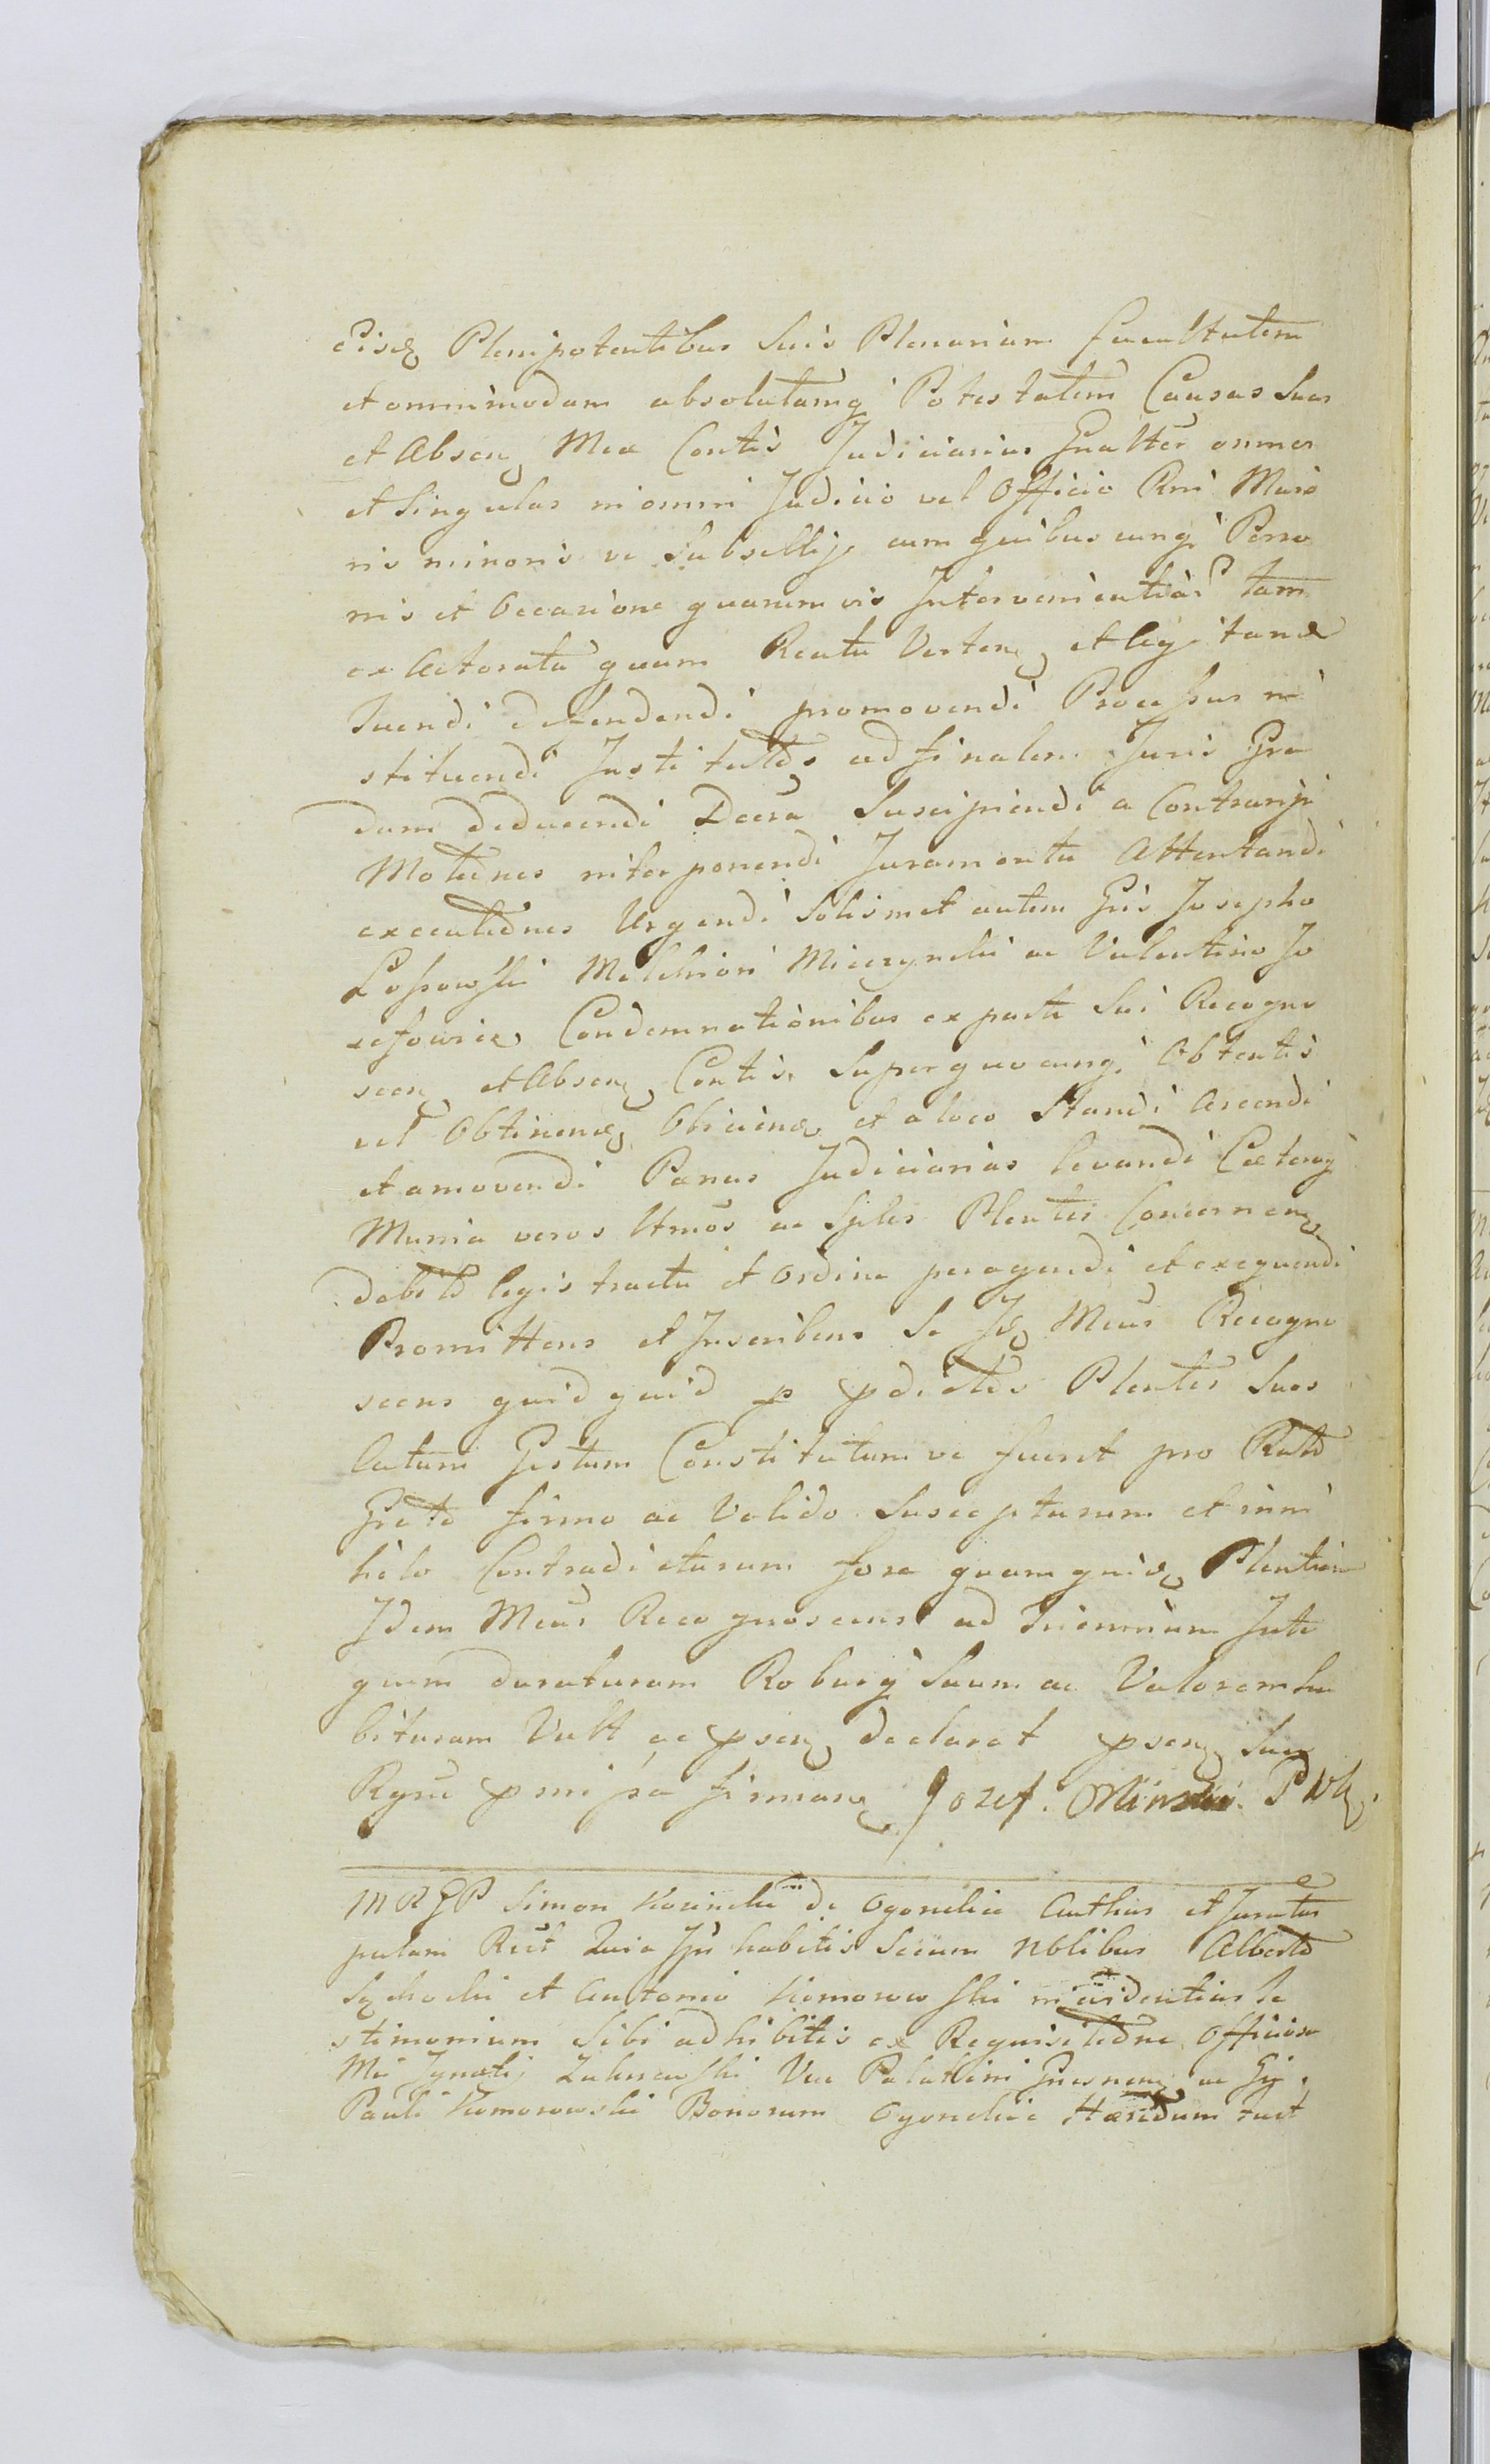 Eisdẽ Plenipotentibus Suis Plenariam facultatem
et omnimodam absolutamq̃ Potestatem Causas Suas
et Absen. Meæ Contis Judiciarias Gnalter omnes
et Singulas in omni Judicio vel Officio Rni Maio
ris minoris ve Subsellij, cum quibuscunq̃ Perso
nis et Occasione quarumvis Intervenientiar tam
ex Actoratu quam Reatu Verten. et legitand
Tuendi defendendi promovendi Processus in
stituendi Institutos ad finalem Juris Gra
dum deducendi Decra Suscipiendi a Contrarijs
Motiones interponendi Juramenta Attentandi
executiones Urgendi Solismet autem Gñis Josepho
Lossowski Melchiori Mierzynski ac Valentino Jo
zefowicz Condemnationibus ex parte Sui Recogno
scen. et Absen. Contis. Super quocunq̃ Obtentis
vel Obtinend. Obiiciend et a loco Standi Arcendi
et amovendi Pænas Judiciarias levandi Cæteraq̃
Munia veros Umos ac Sples Plentes Concernen.
debito legis tractu et ordine peragendi et exequendi
Promittens et Inscribens Se Id. Meus Recogno
scens quidquid p pdictos Plentes Suos
Actum Gestum Constitutum ve fuerit pro Rato
Grato firmo ac Valido Suscepturum et in ni
hilo Contradicturum fore quamquid. Plentiam
Idem Meus Recognoscens ad Triennium Inte
grum duraturam Roburq̃ Suum ac Valorem ha
bituram Vult ac psen. declarat psen. Sua
Rgne pmissa firman. Jozef. Miński. P Wk.
M R G P Simon Kosinski de Ogonelice Authus et Juratus
palam Rect Quia Ips habitis Secum Nblibus Alberto
Sychocki et Antonio Komorowski in evidentius te
stimonium Sibi adhibitis ex Requisitione Officiosa
Mci Ignatij Zakrzewski Vice Palatini Gnesnen. ac G.
Pauli Komorowski Bonorum Ogonelice Hæredum fuit